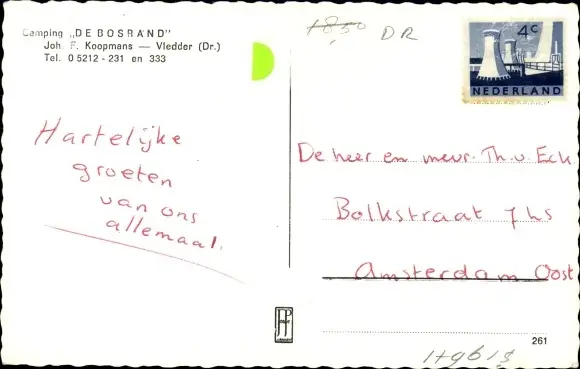 Camping „DE BOSRAND”
Joh. F. Koopmans — Vledder (Dr.)
Tel. 0 5212 - 231 en 333
DR
4c
NEDERLAND
Hartelijke
groeten
van ons
allemaal.
De heer en mevr. Th. v. Eck
Bolkstraat 7 hs
Amsterdam Oost
JP
261